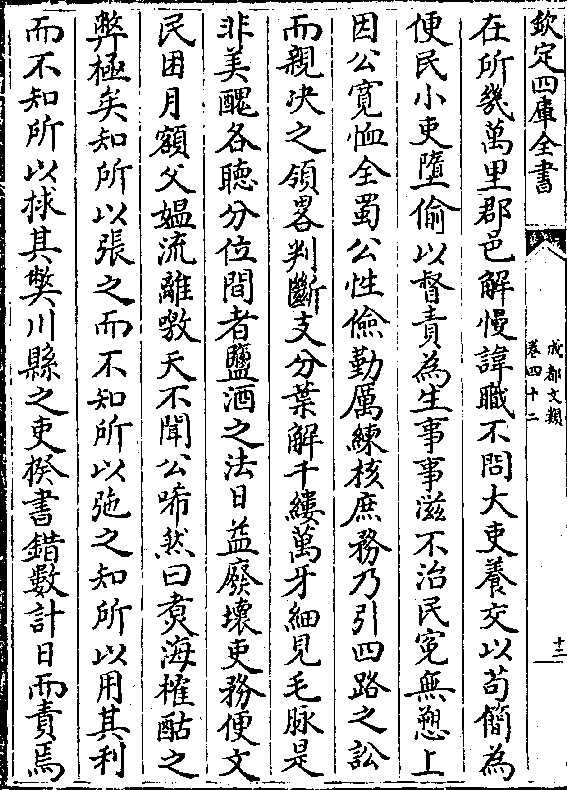 欽定四庫全書
成都文類
卷四十二
十二
在所幾萬里郡邑解慢諱職不問大吏養交以苟簡為
便民小吏墮偷以督責為生事事滋不治民寃無愬上
因公寛恤全蜀公性儉勤厲練核庶務乃引四路之訟
而親决之領畧判斷支分葉解千縷萬牙細見毛脉是
非美醜各聴分位間者鹽酒之法日益廢壊吏務便文
民困月額父媼流離嗷天不聞公唏然曰煑海榷酤之
弊極矣知所以張之而不知所以弛之知所以用其利
而不知所以捄其獘川縣之吏揆書錯數計日而責焉